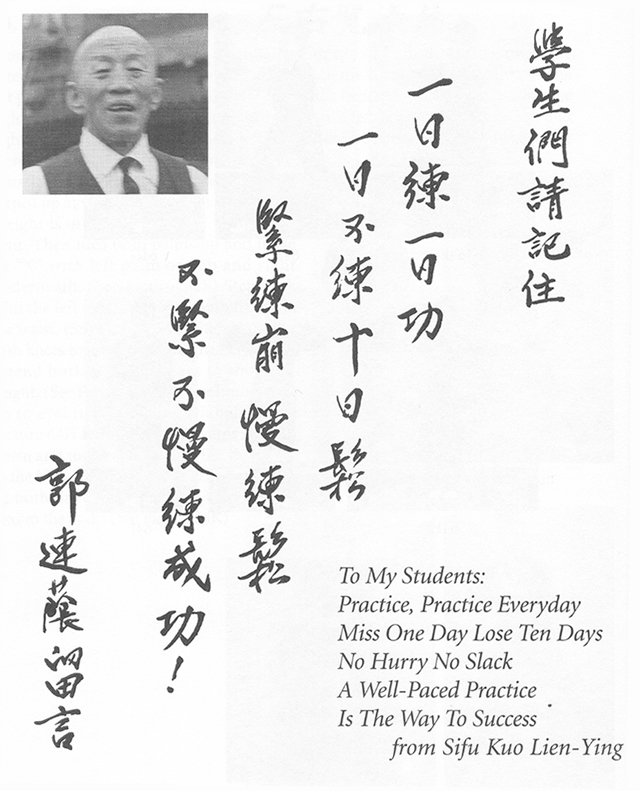 學生們請記住
一日練一日功
一日不練十日鬆
緊練崩慢練鬆
不緊不慢練成功！
郭連蔭留言
To My Students:
Practice, Practice Everyday
Miss One Day Lose Ten Days
No Hurry No Slack
A Well-Paced Practice
Is The Way To Success
from Sifu Kuo Lien-Ying